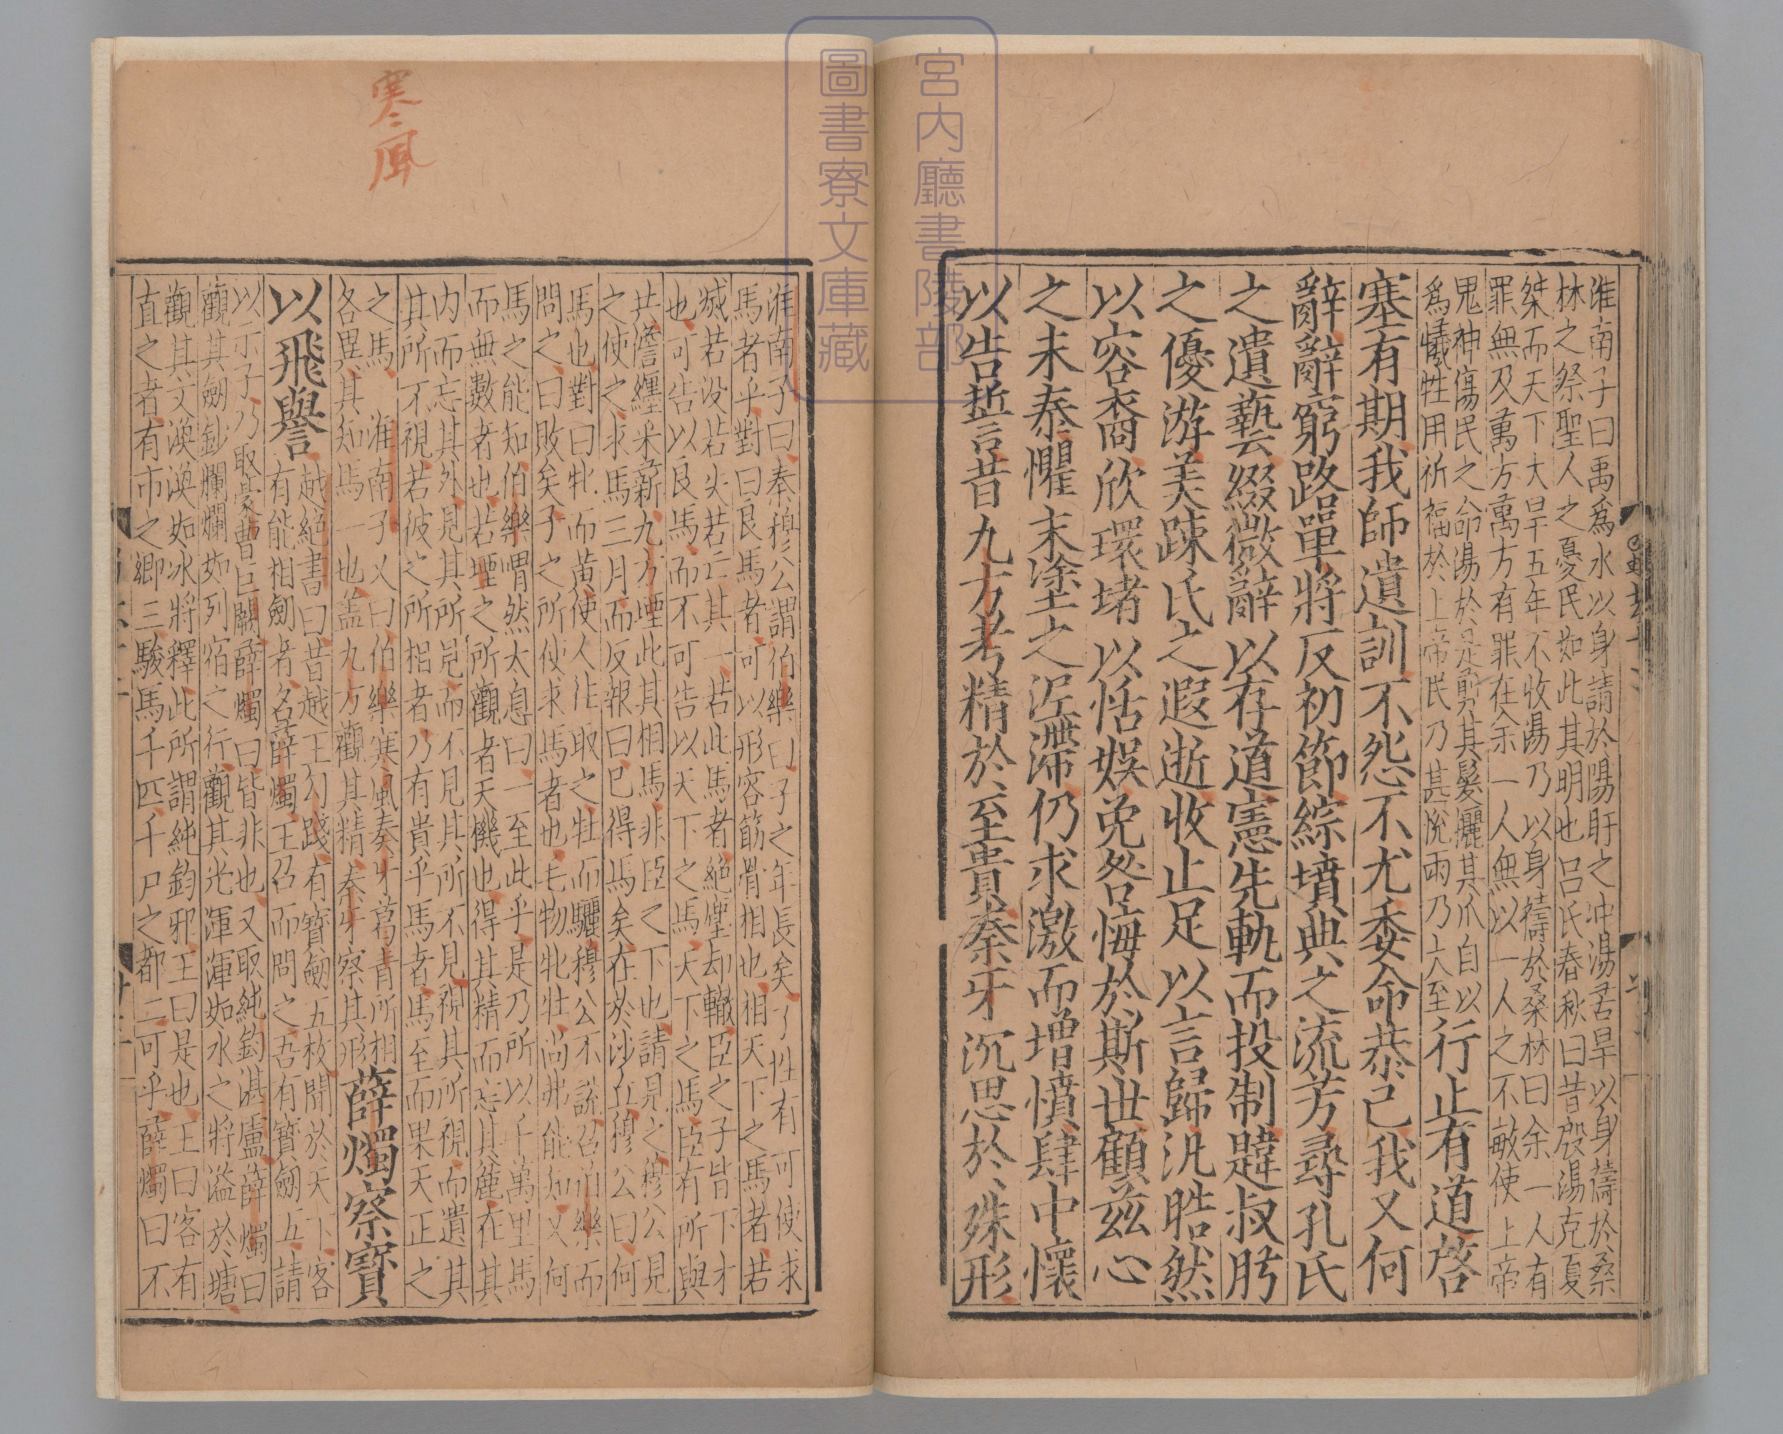 淮南子曰禹爲水以身請於陽盱之沖湯苦旱以身禱於桑
林之祭聖人之憂民如此其明也呂氏春秋曰昔殷湯克夏
桀而天下大旱五年不收湯乃以身禱於桑林曰余一人有
罪無及萬方萬方有罪在余一人無以一人之不敏使上帝
鬼神傷民之命湯於是剪其髮攦其爪自以
爲犧牲用祈福於上帝民乃甚悅雨乃大至
行止有道啓
塞有期我師遺訓不怨不尤委命恭己我又何
辭辭窮路單將反初節綜墳典之流芳尋孔氏
之遺藝綴微辭以存道憲先軌而投制韙叔肸
之優游美疎氏之遐逝收止足以言歸汎皓然
以容裔欣環堵以恬娛免咎悔於斯世顧茲心
之未泰懼末塗之泥滯仍求激而增憤肆中懷
以告誓昔九方考精於至貴秦牙沉思於殊形
寒風
淮南子曰秦穆公謂伯樂曰子之年長矣子姓有可使求
馬者乎對曰良馬者可以形容筋骨相也相天下之馬者若
滅若沒若失若亡其一若此馬者絕塵却轍臣之子皆下才
也可告以良馬而不可告以天下之馬天下之馬臣有所與
共儋纏采薪九方堙此其相馬非臣之下也請見之穆公見
之使之求馬三月而反報曰已得馬矣在於沙丘穆公曰何
馬也對曰牝而黃使人往取之牡而驪穆公不說召伯樂而
問之曰敗矣子之所使求馬者也毛物牝牡尚弗能知又何
馬之能知伯樂喟然太息曰一至此乎是乃所以千萬里馬
而無數者也若堙之所觀者天機也得其精而忘其麄在其
內而忘其外見其所見而不見其所不見視其所視而遺其
其所不視若彼之所相者乃有貴乎馬者馬至而果天正之
之馬 淮南子又曰伯樂寒風秦牙葛青所相
各異其知馬一也蓋九方觀其精秦牙察其形
薛燭察寶
以飛譽
越絕書曰昔越王勾踐有寶劔五枚聞於天下客
有能相劔者名薛燭王召而問之吾有寶劔五請
以示子乃取豪曹巨闕薛燭曰皆非也又取純鈞湛盧薛燭曰
觀其劔鈔爛爛如列宿之行觀其光渾渾如水之將溢於塘
觀其文渙渙如冰將釋此所謂純鈞邪王曰是也王曰客有
直之者有市之鄉三駿馬千匹千戶之都二可乎薛燭曰不
宮內廳書陵部
圖書寮文庫藏